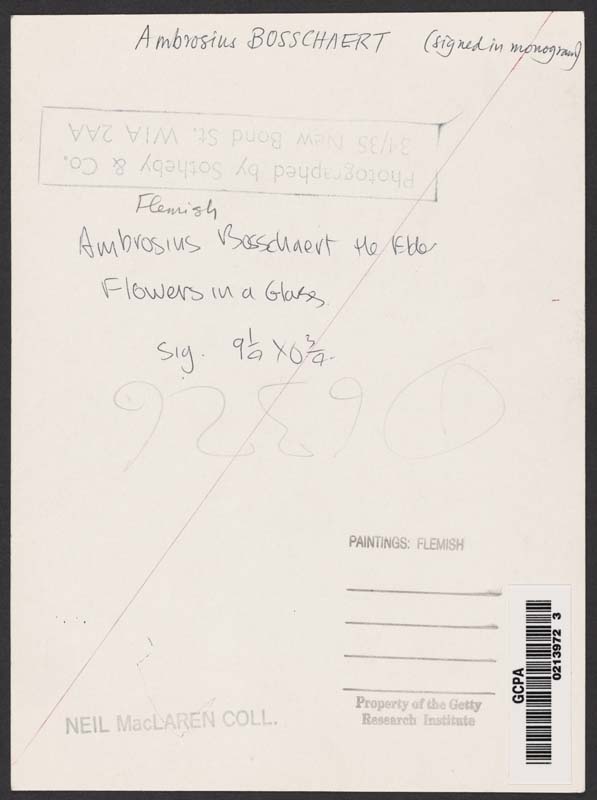 Ambrosius BOSSCHAERT (signed in monogram)
Photographed by Sotheby & Co.
34/35 New Bond St. W1A 2AA
Flemish
Ambrosius Bosschaert the Elder
Flowers in a Glass
Sig.
PAINTINGS: FLEMISH
Property of the Getty
Research Institute
NEIL MacLAREN COLL.
GCPA
0213972 3